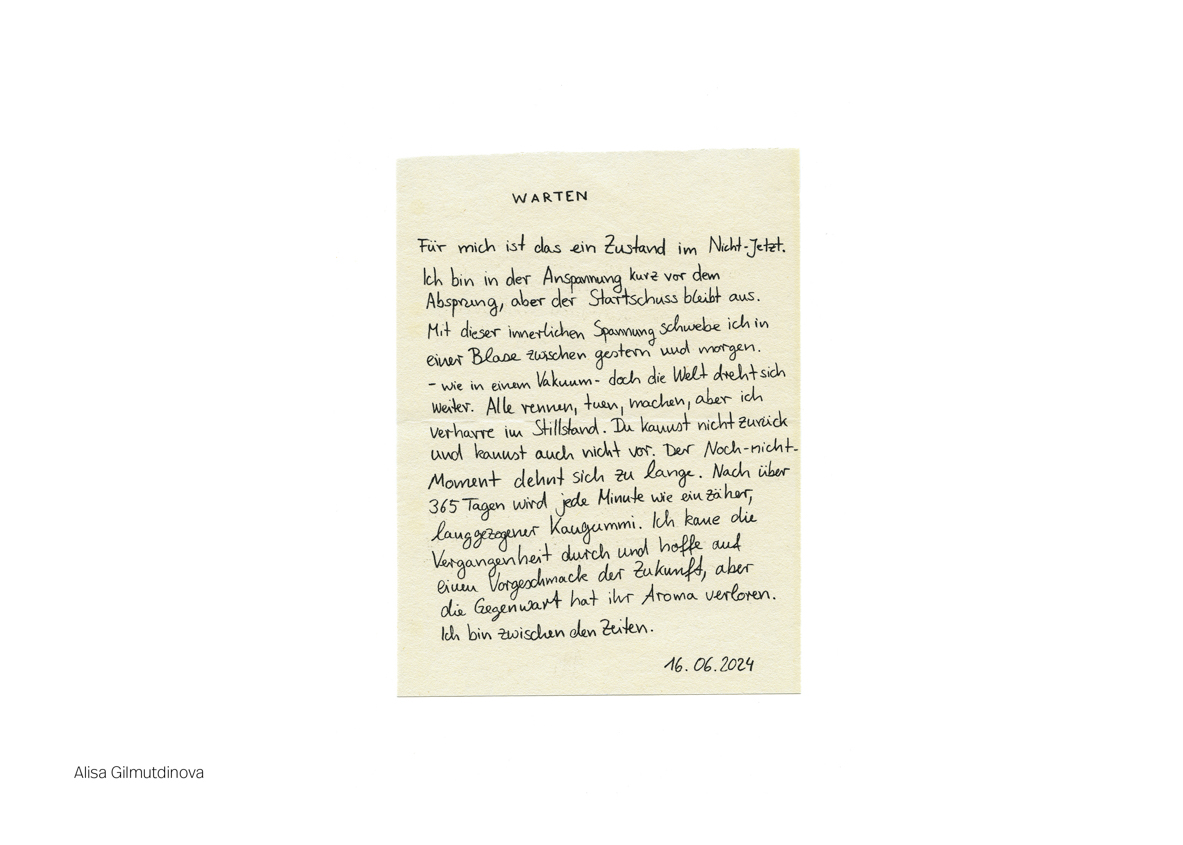 WARTEN
Für mich ist das ein Zustand im Nicht-Jetzt.
Ich bin in der Anspannung kurz vor dem
Absprung, aber der Startschuss bleibt aus.
Mit dieser innerlichen Spannung schwebe ich in
einer Blase zwischen gestern und morgen.
- wie in einem Vakuum - doch die Welt dreht sich
weiter. Alle rennen, tuen, machen, aber ich
verharre im Stillstand. Du kannst nicht zurück
und kannst auch nicht vor. Der Noch-nicht-
Moment dehnt sich zu lange. Nach über
365 Tagen wird jede Minute wie ein zäher,
langgezogener Kaugummi. Ich kaue die
Vergangenheit durch und hoffe auf
einen Vorgeschmack der Zukunft, aber
die Gegenwart hat ihr Aroma verloren.
Ich bin zwischen den Zeiten.
16.06.2024
Alisa Gilmutdinova